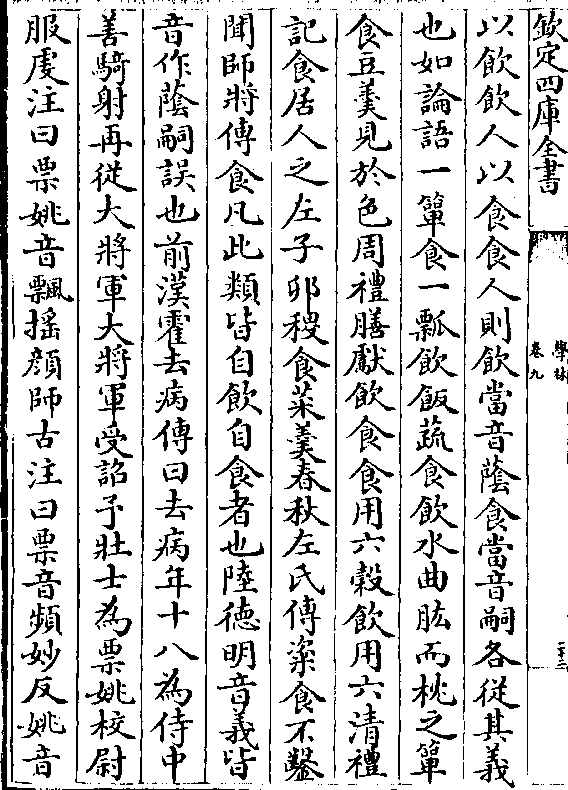 欽定四庫全書
學林
卷九
二十三
以飲飲人以食食人則飲當音蔭食當音嗣各從其義
也如論語一簞食一瓢飲飯蔬食飲水曲肱而枕之簞
食豆羹見於色周禮膳獻飲食食用六穀飲用六清禮
記食居人之左子卯稷食菜羹春秋左氏傳粢食不鑿
聞師將傳食凡此類皆自飲自食者也陸德明音義皆
音作蔭嗣誤也前漢霍去病傳曰去病年十八為侍中
善騎射再從大將軍大將軍受詔予壯士為票姚校尉
服虔注曰票姚音飄搖顔師古注曰票音頻妙反姚音